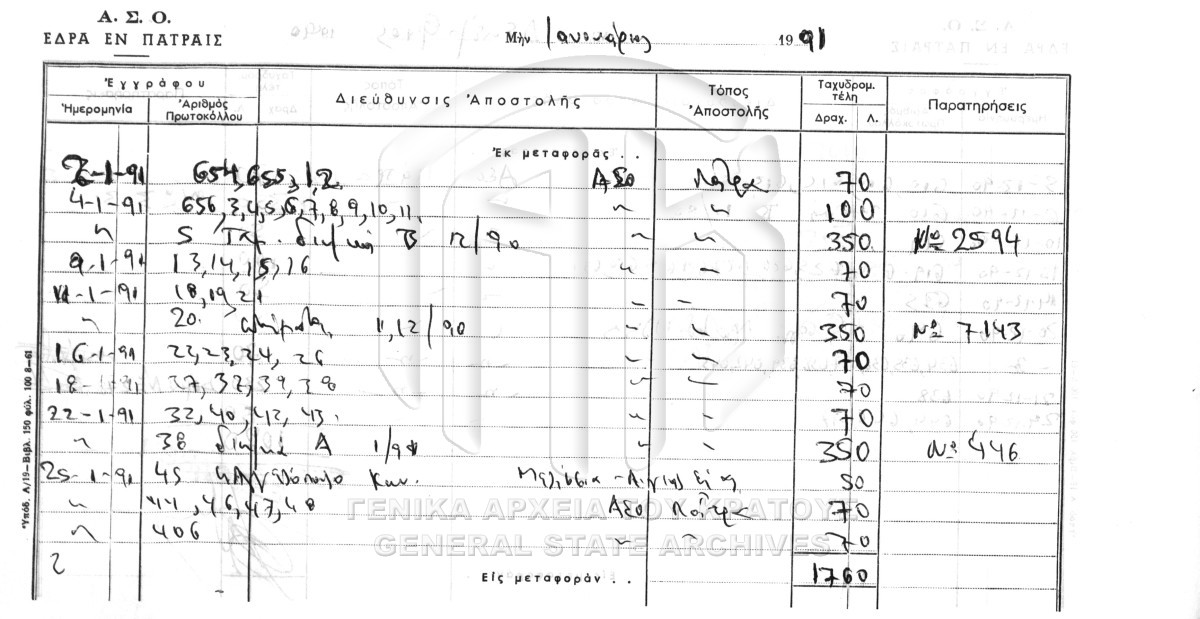 Α. Σ. Ο.
ΕΔΡΑ ΕΝ ΠΑΤΡΑΙΣ
Μὴν Ιανουάριος 1991
Ἐγγράφου Διεύθυνσις Ἀποστολῆς Τόπος Ἀποστολῆς Ταχυδρομ. τέλη Παρατηρήσεις
Ἡμερομηνία Ἀριθμὸς Πρωτοκόλλου Δραχ. Λ.
Ἐκ μεταφορᾶς . .
2-1-91 654, 655, 1, 2. ΑΣΟ Πάτρα 70
4-1-91 656, 3, 4, 5, 6, 7, 8, 9, 10, 11, 〃 〃 100
〃 5 Β 12/90 〃 〃 350 Νο 2594
9-1-91 13, 14, 15, 16 〃 〃 70
11-1-91 18, 19 21 〃 〃 70
〃 20. 11, 12/90 〃 〃 350 Νο 7143
16-1-91 22, 23, 24, 26 〃 〃 70
18-1-91 37, 32, 39, 38 〃 〃 70
22-1-91 32, 40, 42, 43. 〃 〃 70
〃 38 Α 1/91 〃 〃 350 Νο 446
25-1-91 45 Κων. Μελίσσια 50
〃 44, 46, 47, 48 ΑΣΟ Πάτρα 70
〃 406 〃 〃 70
Εἰς μεταφορὰν . . 1760
Ὑπόδ. Α/19—Βιβλ. 150 φύλ. 100 8—61
ΓΕΝΙΚΑ ΑΡΧΕΙΑ ΤΟΥ ΚΡΑΤΟΥΣ
GENERAL STATE ARCHIVES